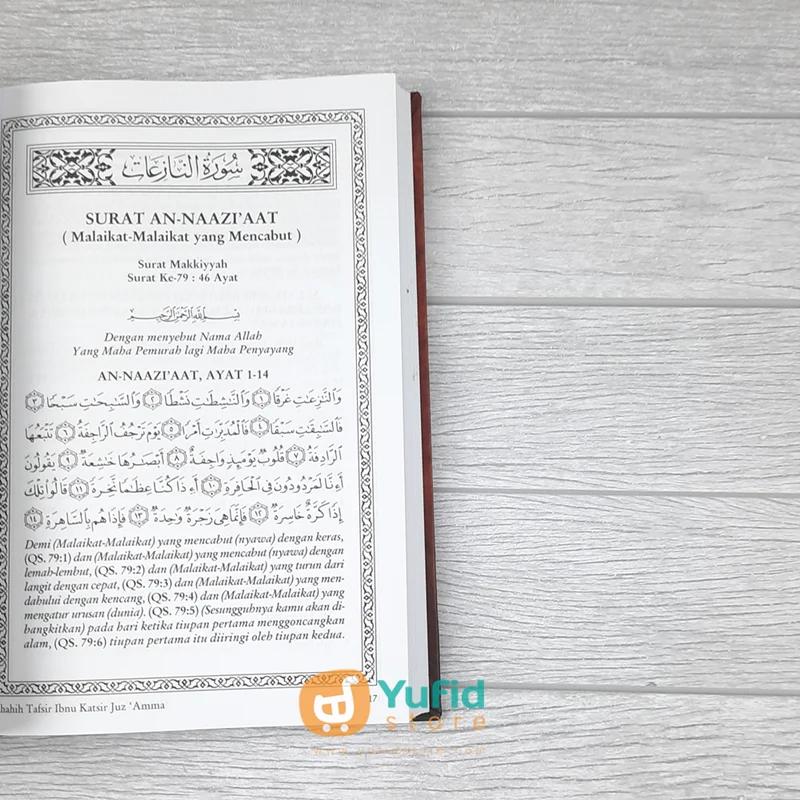 سُورَةُ النَّازِعَاتِ
SURAT AN-NAAZI'AAT
( Malaikat-Malaikat yang Mencabut )
Surat Makkiyyah
Surat Ke-79 : 46 Ayat
بِسْمِ اللَّهِ الرَّحْمَٰنِ الرَّحِيمِ
Dengan menyebut Nama Allah
Yang Maha Pemurah lagi Maha Penyayang
AN-NAAZI'AAT, AYAT 1-14
وَالنَّازِعَاتِ غَرْقًا ١ وَالنَّاشِطَاتِ نَشْطًا ٢ وَالسَّابِحَاتِ سَبْحًا ٣
فَالسَّابِقَاتِ سَبْقًا ٤ فَالْمُدَبِّرَاتِ أَمْرًا ٥ يَوْمَ تَرْجُفُ الرَّاجِفَةُ ٦ تَتْبَعُهَا
الرَّادِفَةُ ٧ قُلُوبٌ يَوْمَئِذٍ وَاجِفَةٌ ٨ أَبْصَارُهَا خَاشِعَةٌ ٩ يَقُولُونَ
أَءِنَّا لَمَرْدُودُونَ فِي الْحَافِرَةِ ١٠ أَءِذَا كُنَّا عِظَامًا نَّخِرَةً ١١ قَالُوا تِلْكَ
إِذًا كَرَّةٌ خَاسِرَةٌ ١٢ فَإِنَّمَا هِيَ زَجْرَةٌ وَاحِدَةٌ ١٣ فَإِذَا هُم بِالسَّاهِرَةِ ١٤
Demi (Malaikat-Malaikat) yang mencabut (nyawa) dengan keras,
(QS. 79:1) dan (Malaikat-Malaikat) yang mencabut (nyawa) dengan
lemah-lembut, (QS. 79:2) dan (Malaikat-Malaikat) yang turun dari
langit dengan cepat, (QS. 79:3) dan (Malaikat-Malaikat) yang men-
dahului dengan kencang, (QS. 79:4) dan (Malaikat-Malaikat) yang
mengatur urusan (dunia). (QS. 79:5) (Sesungguhnya kamu akan di-
bangkitkan) pada hari ketika tiupan pertama menggoncangkan
alam, (QS. 79:6) tiupan pertama itu diiringi oleh tiupan kedua.
Tafsir Ibnu Katsir Juz 'Amma
17
Yufid
store